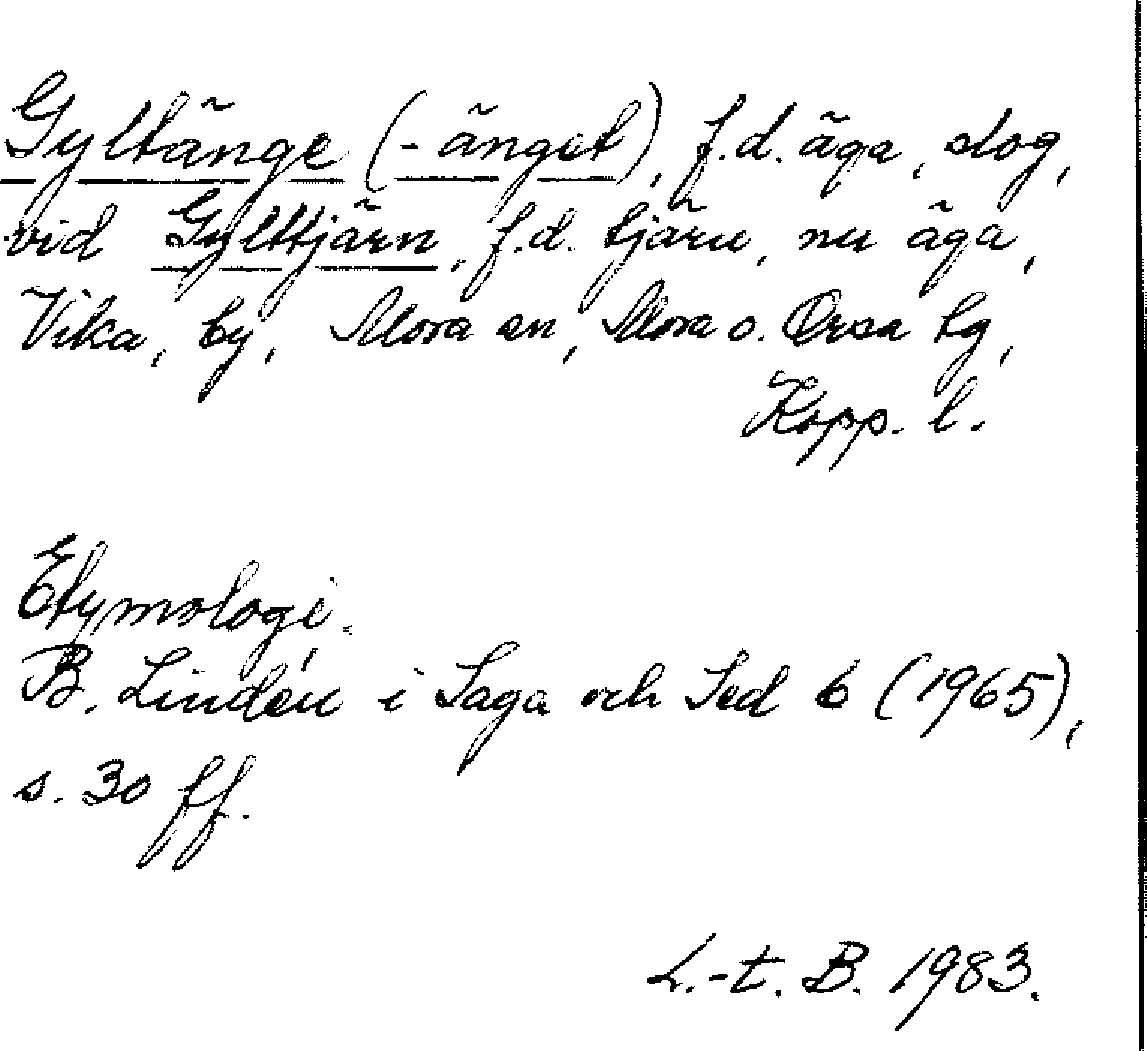 Gyltänge (-änget), f.d. äga, slog,
vid Gylttjärn, f.d. tjärn, nu äga,
Vika, by, Mora sn, Mora o. Orsa tg,
Kopp. l.
Etymologi.
B. Lindén i Saga och Sed 6 (1965),
s. 30 ff.
L.-t. B. 1983.